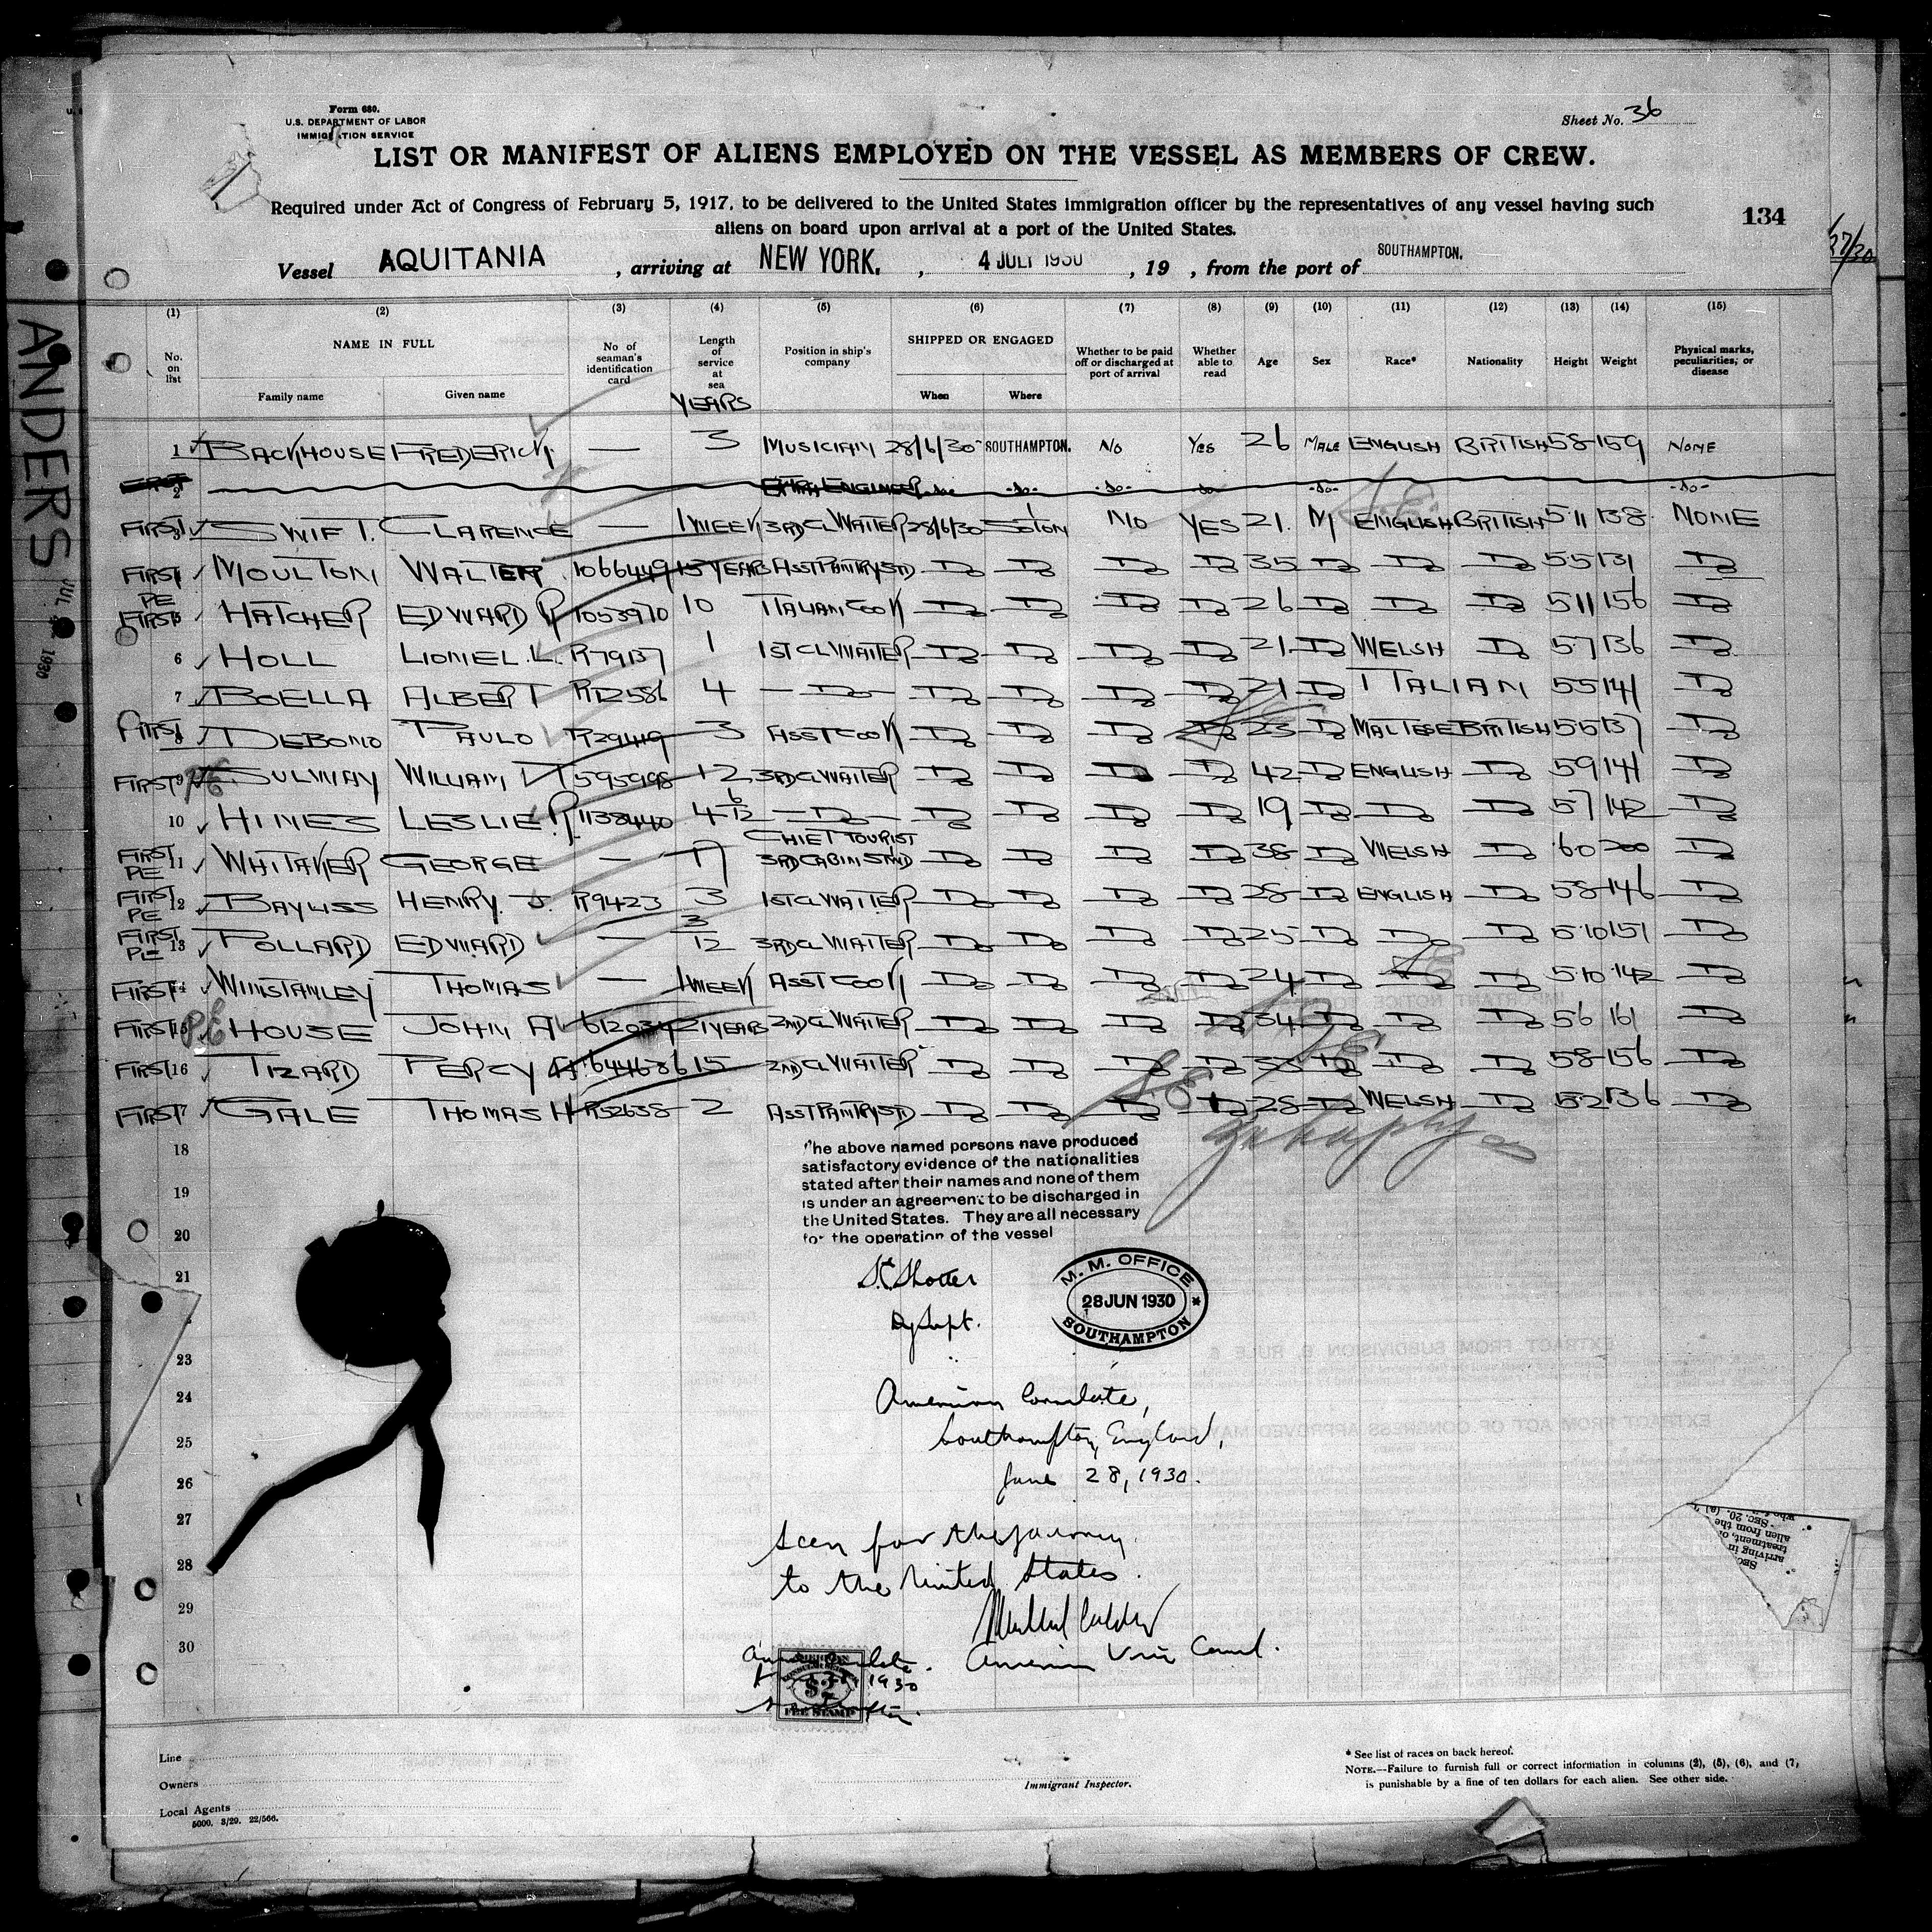 Form 680.
U.S. DEPARTMENT OF LABOR
IMMIGRATION SERVICE
Sheet No. 36
LIST OR MANIFEST OF ALIENS EMPLOYED ON THE VESSEL AS MEMBERS OF CREW.
Required under Act of Congress of February 5, 1917, to be delivered to the United States immigration officer by the representatives of any vessel having such
aliens on board upon arrival at a port of the United States.
134
Vessel AQUITANIA, arriving at NEW YORK., 4 JULY 1930, 19 , from the port of SOUTHAMPTON.
ANDERS
(1) (2) (3) (4) (5) (6) (7) (8) (9) (10) (11) (12) (13) (14) (15)
No. on list NAME IN FULL Family name Given name No of seaman's identification card Length of service at sea YEARS Position in ship's company SHIPPED OR ENGAGED When Where Whether to be paid off or discharged at port of arrival Whether able to read Age Sex Race* Nationality Height Weight Physical marks, peculiarities, or disease
1 BACKHOUSE FREDERICK — 3 MUSICIAN 28/6/30 SOUTHAMPTON. No Yes 26 MALE ENGLISH BRITISH 58 159 NONE
2 -do- -do- do -do- -do-
FIRST 3 SWIFT. CLARENCE — 1 WEEK 3RD CL WAITER 28/6/30 SOTON NO YES 21. M ENGLISH BRITISH 511 138 NONE
FIRST MOULTON WALTER 1066449 15 YEARS ASST PANTRY STD D D D D 35 D D D 55 131 D
PE FIRST 5 HATCHER EDWARD R 1053970 10 ITALIAN COOK D D D D 26 D D D 511 156 D
6 HOLL LIONEL. L. R79137 1 1ST CL WAITER D D D D 21 D WELSH D 57 136 D
7 BOELLA ALBERT R12586 4 — D — D D D D 21 D ITALIAN 55 141 D
FIRST 8 DEBONO PAULO R29419 3 ASST COOK D D D D 23 D MALTESE BRITISH 55 137 D
FIRST 9 PE SULWAY WILLIAM 595998 12 3RD CL WAITER D D D D 42 D ENGLISH D 59 141 D
10 HINES LESLIE. R 1138440 4 6/12 — D — D D D D 19 D D D 57 142 D
FIRST PE 11 WHITAKER GEORGE — 17 CHIEF TOURIST 3RD CABIN STWD D D D D 38 D WELSH D 60 200 D
FIRST PE 12 BAYLISS HENRY. J. R9423 3 1ST CL WAITER D D D D 28 D ENGLISH D 58 146 D
FIRST PE 13 POLLARD EDWARD — 3/12 3RD CL WAITER D D D D 25 D D D 510 151 D
FIRST 14 WINSTANLEY THOMAS — 1 WEEK ASST COOK D D D D 24 D D D 510 142 D
FIRST 15 PE HOUSE JOHN A 21 YEARS 2ND CL WAITER D D D D 34 D D D 56 161 D
FIRST 16 TIZARD PERCY A. 644686 15 2ND CL WAITER D D D D 35 D D D 58 156 D
FIRST GALE THOMAS H R52658 2 ASST PANTRY STD D D D D 28 D WELSH D 52 136 D
18
The above named persons have produced
satisfactory evidence of the nationalities
19
stated after their names and none of them
is under an agreement to be discharged in
the United States. They are all necessary
20
for the operation of the vessel
21
Dy Supt.
M. M. OFFICE
28 JUN 1930 *
SOUTHAMPTON
23
24
American Consulate,
25
Southampton, England,
26
June 28, 1930.
27
Seen for the journey
28
to the United States.
29
30
American Vice Consul.
1930
$2
FEE STAMP
Line
Owners
Local Agents
5000. 3/29. 22/566.
Immigrant Inspector.
* See list of races on back hereof.
NOTE.—Failure to furnish full or correct information in columns (2), (5), (6), and (7,
is punishable by a fine of ten dollars for each alien. See other side.